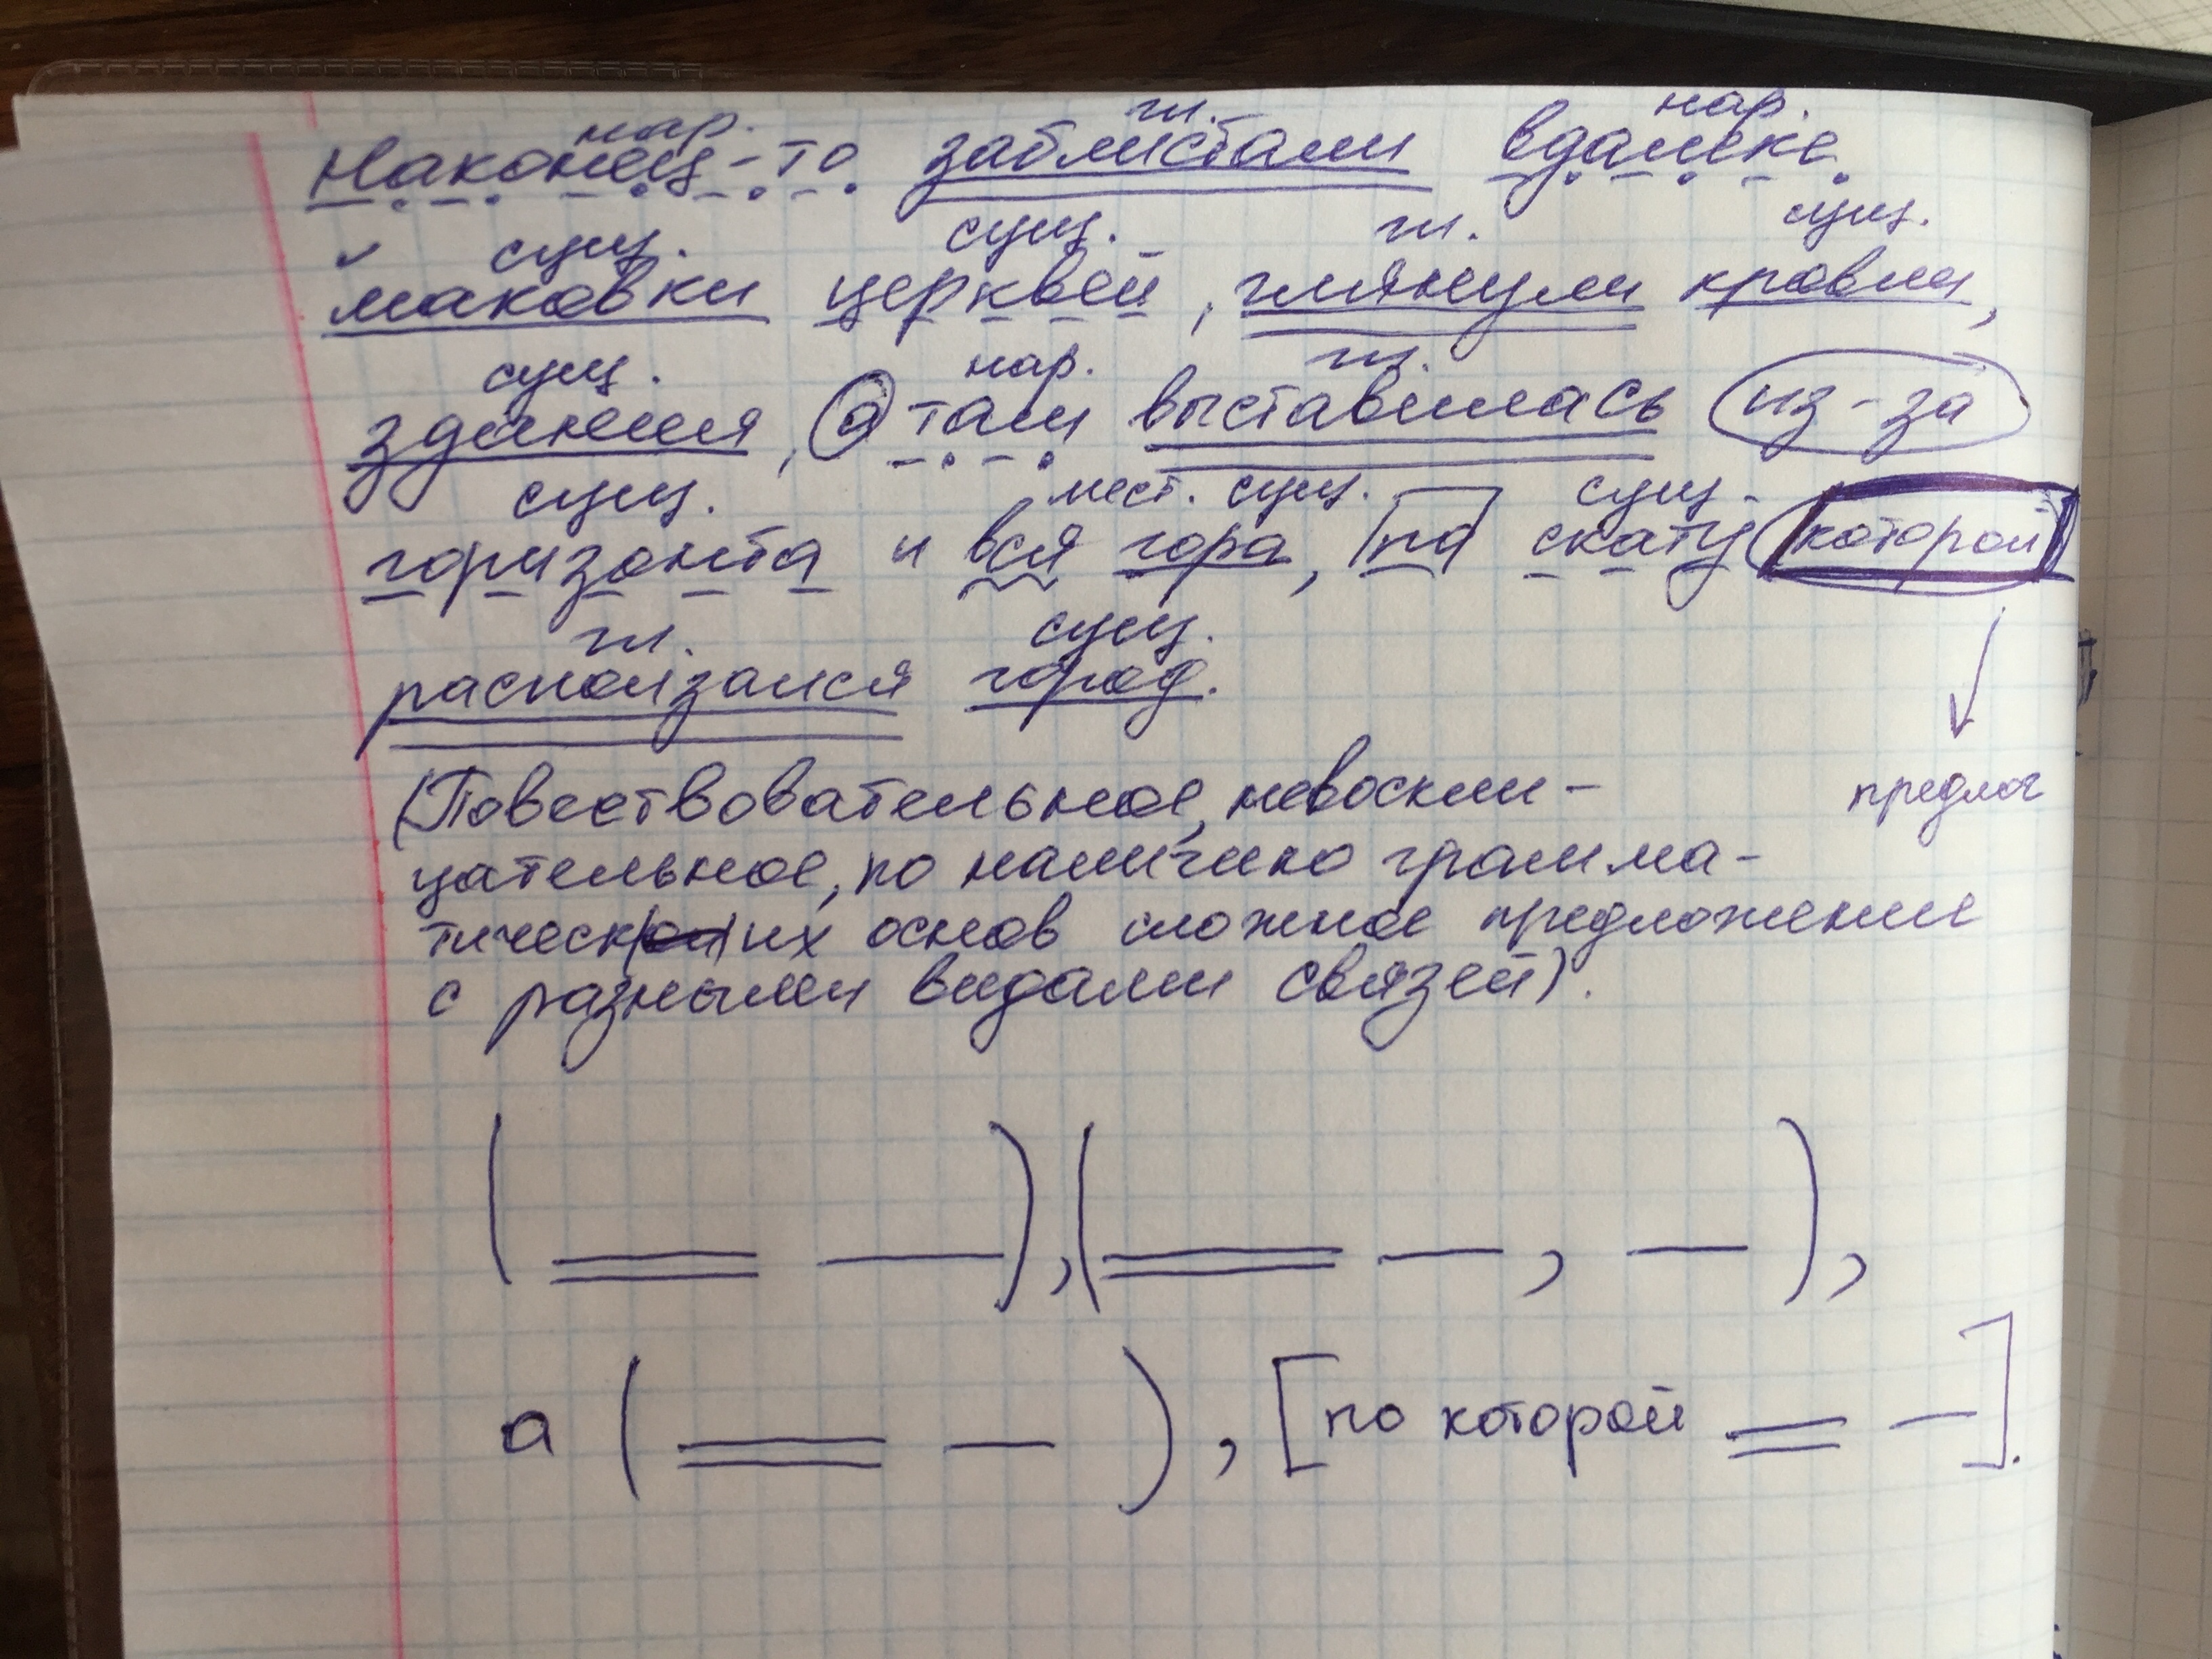 нар. гл. нар.
Наконец-то заблистали вдалеке
сущ. сущ. гл. сущ.
маковки церквей, глянули кровли,
сущ. нар. гл.
здания, а там выставилась из-за
сущ. мест. сущ. сущ.
горизонта и вся гора, по скату которой
гл. сущ.
расползался город.
(Повествовательное, невоскли-
предлог
цательное, по наличию грамма-
тических основ сложное предложение
с разными видами связей).
( ), ( , ),
а ( ), [по которой ].